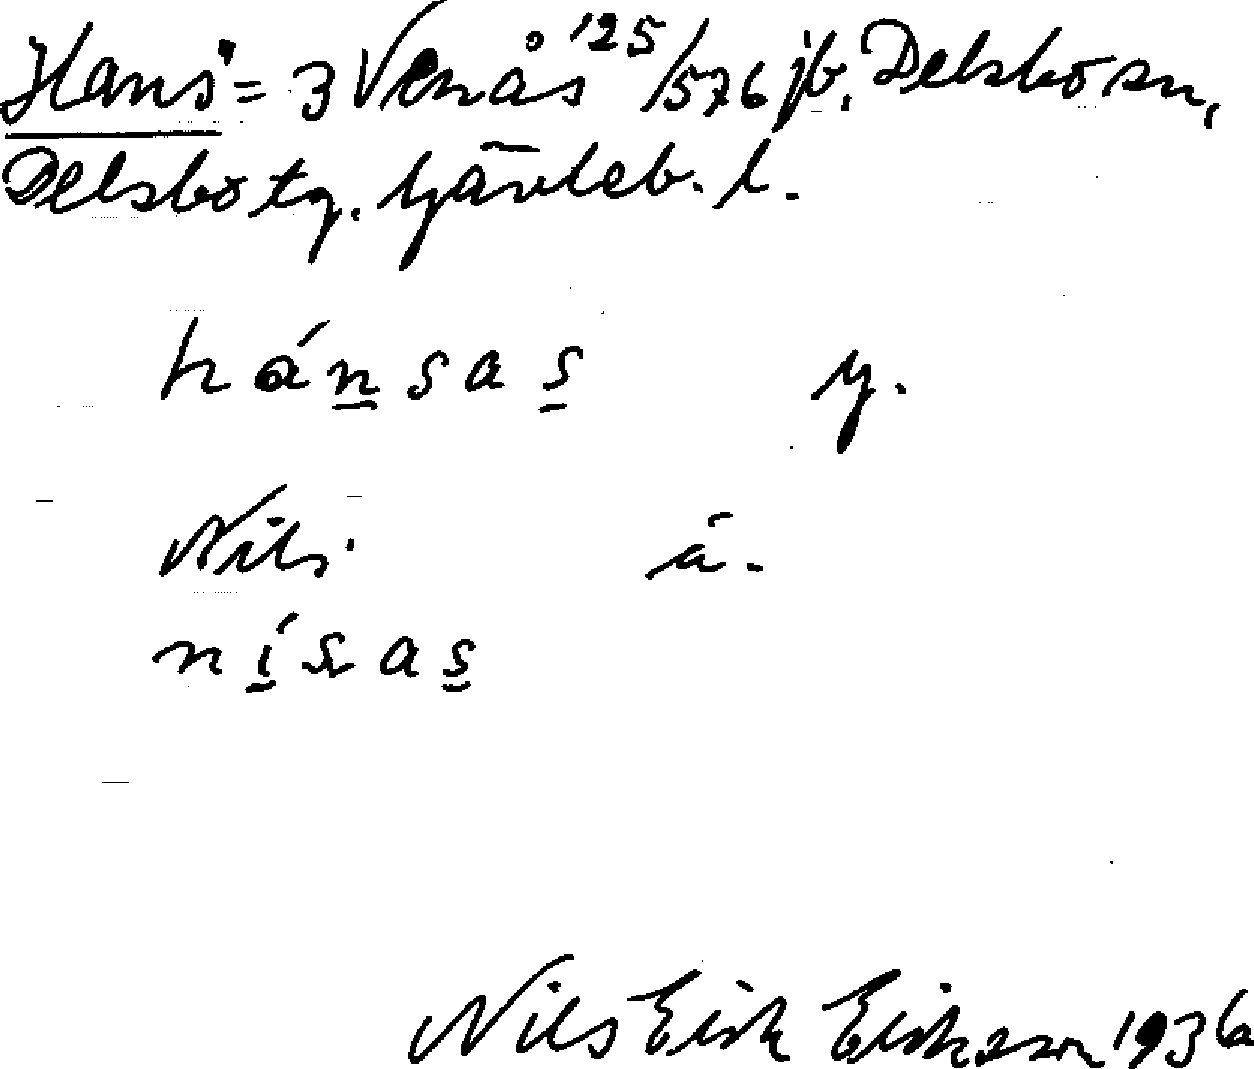 Hans = 3 Venås '25/576 jb, Delsbo sn,
Delsbo tg. Gävleb. l.
hánsas y.
Nils ä.
nísas
Nils Erik Eriksson 1936